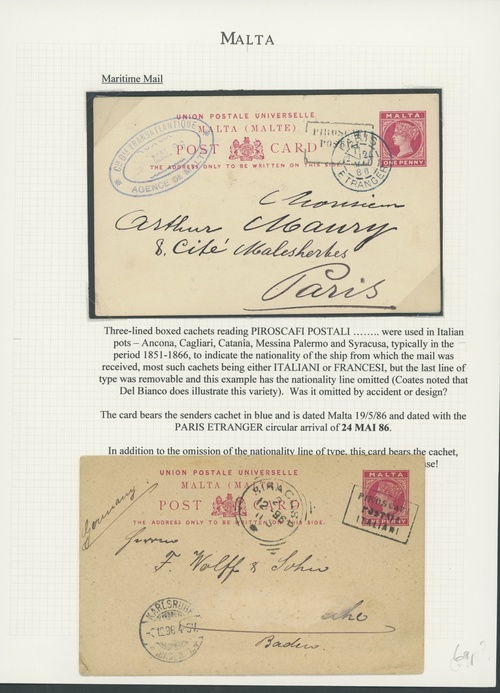 MALTA
Maritime Mail
UNION POSTALE UNIVERSELLE
MALTA (MALTE)
POST CARD
THE ADDRESS ONLY TO BE WRITTEN ON THIS
MALTA
ONE PENNY
CIE GLE TRANSATLANTIQUE
AGENCE DE MALTE
PIROSCAFI
POSTALI
PARIS
ETRANGER
Monsieur
Arthur Maury
8. Cité Malesherbes
Paris
Three-lined boxed cachets reading PIROSCAFI POSTALI …….. were used in Italian
pots – Ancona, Cagliari, Catania, Messina Palermo and Syracusa, typically in the
period 1851-1866, to indicate the nationality of the ship from which the mail was
received, most such cachets being either ITALIANI or FRANCESI, but the last line of
type was removable and this example has the nationality line omitted (Coates noted that
Del Bianco does illustrate this variety). Was it omitted by accident or design?
The card bears the senders cachet in blue and is dated Malta 19/5/86 and dated with the
PARIS ETRANGER circular arrival of 24 MAI 86.
In addition to the omission of the nationality line of type, this card bears the cachet,
use!
UNION POSTALE UNIVERSELLE
MALTA (MA
POST CARD
THE ADDRESS ONLY TO BE WRITTEN ON THIS SIDE.
MALTA
SIRACUSA
PIROSCAFI
POSTALI
ITALIANI
Germany
Herren
F. Wolff & Sohn
Baden
KARLSRUHE